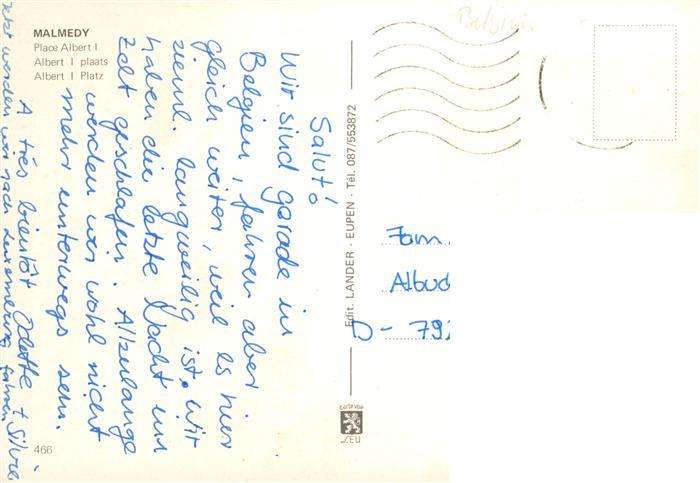 MALMEDY
Place Albert I
Albert I plaats
Albert I Platz
Salut!
Wir sind gerade in
Belgien, fahren aber
gleich weiter, weil es hier
zieml. langweilig ist. Wir
haben die letzte Nacht im
Zelt geschlafen. Allzulange
werden wir wohl nicht
mehr unterwegs sein.
A très bientôt Odette + Silvie
Jetzt werden wir nach Luxemburg fahren.
466
Edit. LANDER - EUPEN - Tél. 087/553872
Fam.
D - 79